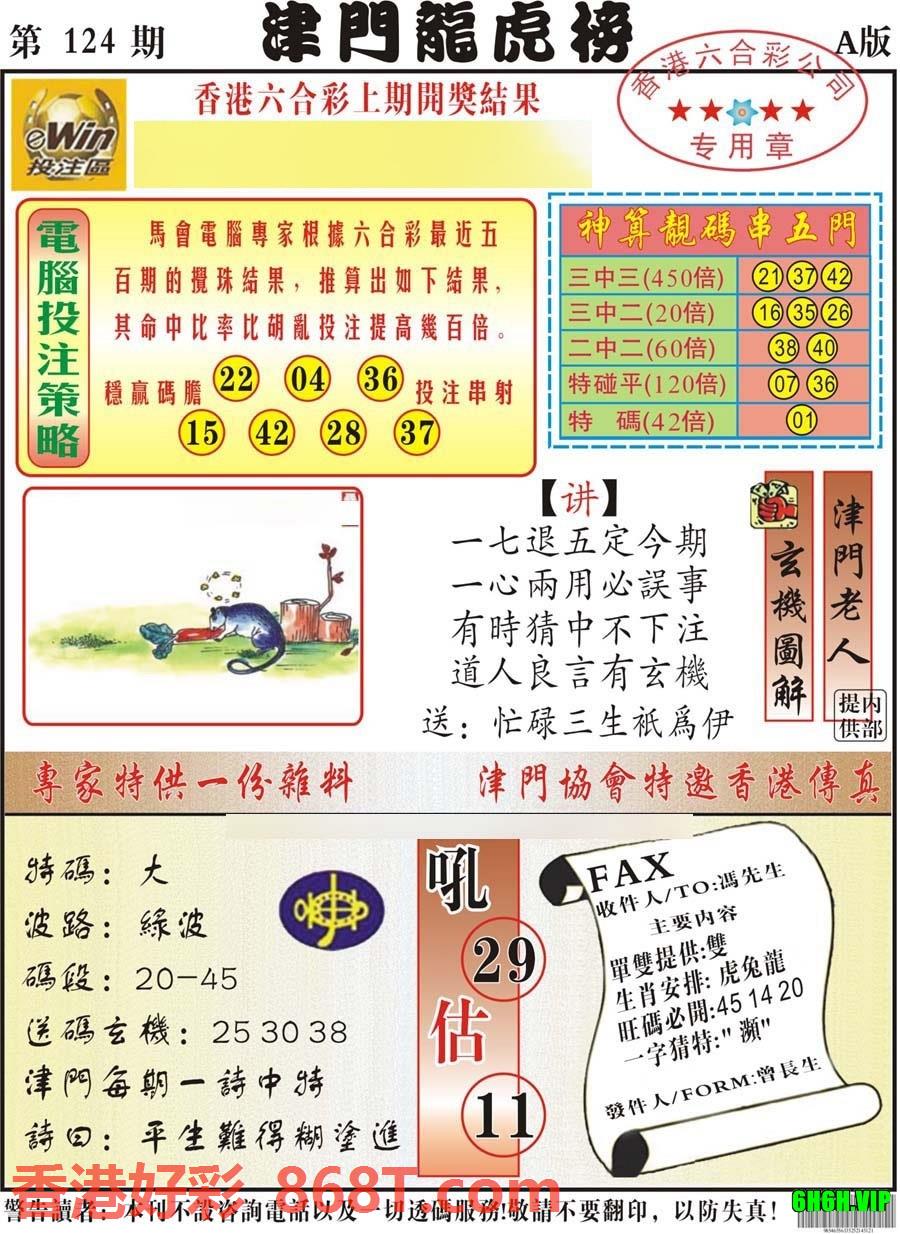 第 124 期
津門龍虎榜
A版
eWin
投注區
香港六合彩上期開獎結果
香港六合彩公司
专用章
電腦投注策略
馬會電腦專家根據六合彩最近五
百期的攪珠結果，推算出如下結果，
其命中比率比胡亂投注提高幾百倍。
穩贏碼膽 22 04 36 投注串射
15 42 28 37
神算靚碼串五門
三中三(450倍) 21 37 42
三中二(20倍) 16 35 26
二中二(60倍) 38 40
特碰平(120倍) 07 36
特 碼(42倍) 01
【讲】
一七退五定今期
一心兩用必誤事
有時猜中不下注
道人良言有玄機
送：忙碌三生祇爲伊
玄機圖解
津門老人
内部提供
專家特供一份雜料
津門協會特邀香港傳真
特碼：大
波路：綠波
碼段：20-45
送碼玄機：25 30 38
津門每期一詩中特
詩曰：平生難得糊塗進
吼
29
估
11
FAX
收件人/TO:馮先生
主要内容
單雙提供:雙
生肖安排:虎兔龍
旺碼必開:45 14 20
一字猜特:"瀕"
發件人/FORM:曾長生
香港好彩 868T.com
警告讀者：本刊不設咨詢電話以及一切透碼服務!敬請不要翻印，以防失真!
6H6H.VIP